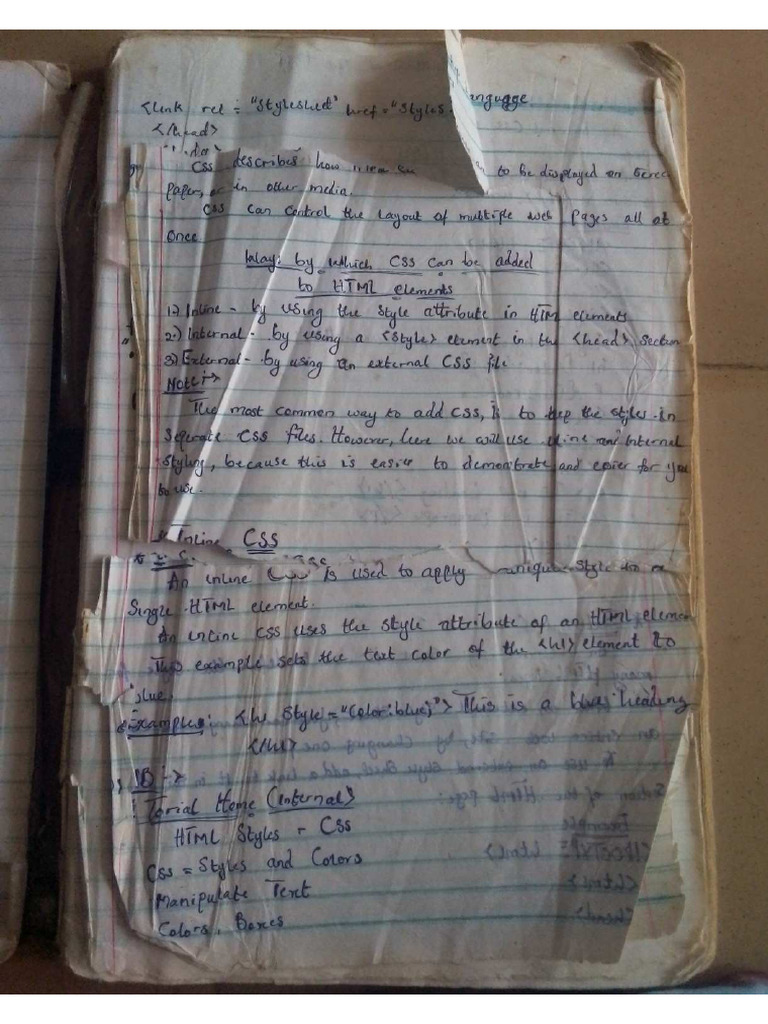 <link rel = "Stylesheet" href = "Styles
language
</head>
CSS describes how to be displayed on Scree
paper, or in other media.
CSS can control the layout of multiple web pages all at
once.
Ways by which CSS can be added
to HTML elements
1) Inline - by using the style attribute in HTML elements
2) Internal - by using a <style> element in the <head> section
3) External - by using an external CSS file
Note:->
The most common way to add CSS, is to keep the styles in
Seperate CSS files. However, here we will use inline and internal
Styling, because this is easier to demonstrate and easier for you
to use.
Inline CSS
An inline is used to apply unique style to a
Single HTML element.
An inline CSS uses the style attribute of an HTML elemen
This example sets the text color of the <h1> element to
blue.
Example: <h1 Style="Color:blue;"> This is a blue heading
</h1>
1B :->
Torial Home (Internal)
HTML Styles - CSS
CSS = Styles and Colors
Manipulate Text
Colors, Boxes